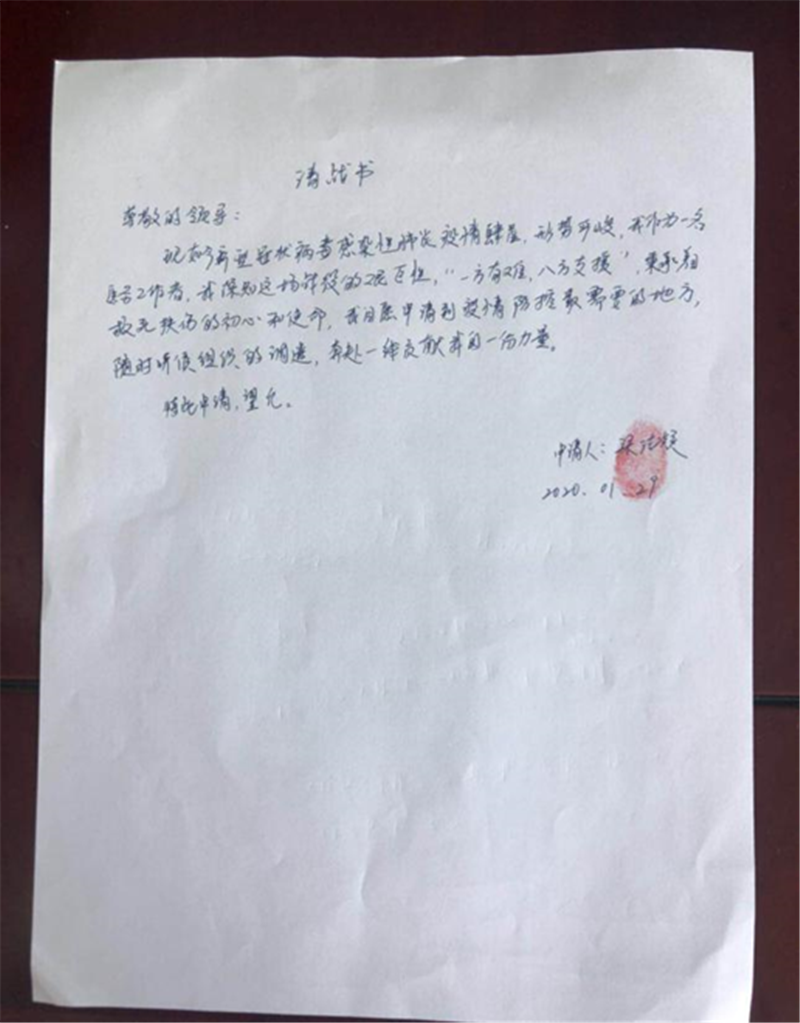 请战书
尊敬的领导：
现如今新型冠状病毒感染性肺炎疫情肆虐，形势严峻，我作为一名
医务工作者，我深知这场战役的艰巨性，“一方有难，八方支援”，秉承着
救死扶伤的初心和使命，我自愿申请到疫情防控最需要的地方，
随时听候组织的调遣，奔赴一线贡献我的一份力量。
特此申请，望允。
申请人：梁
2020.01.29